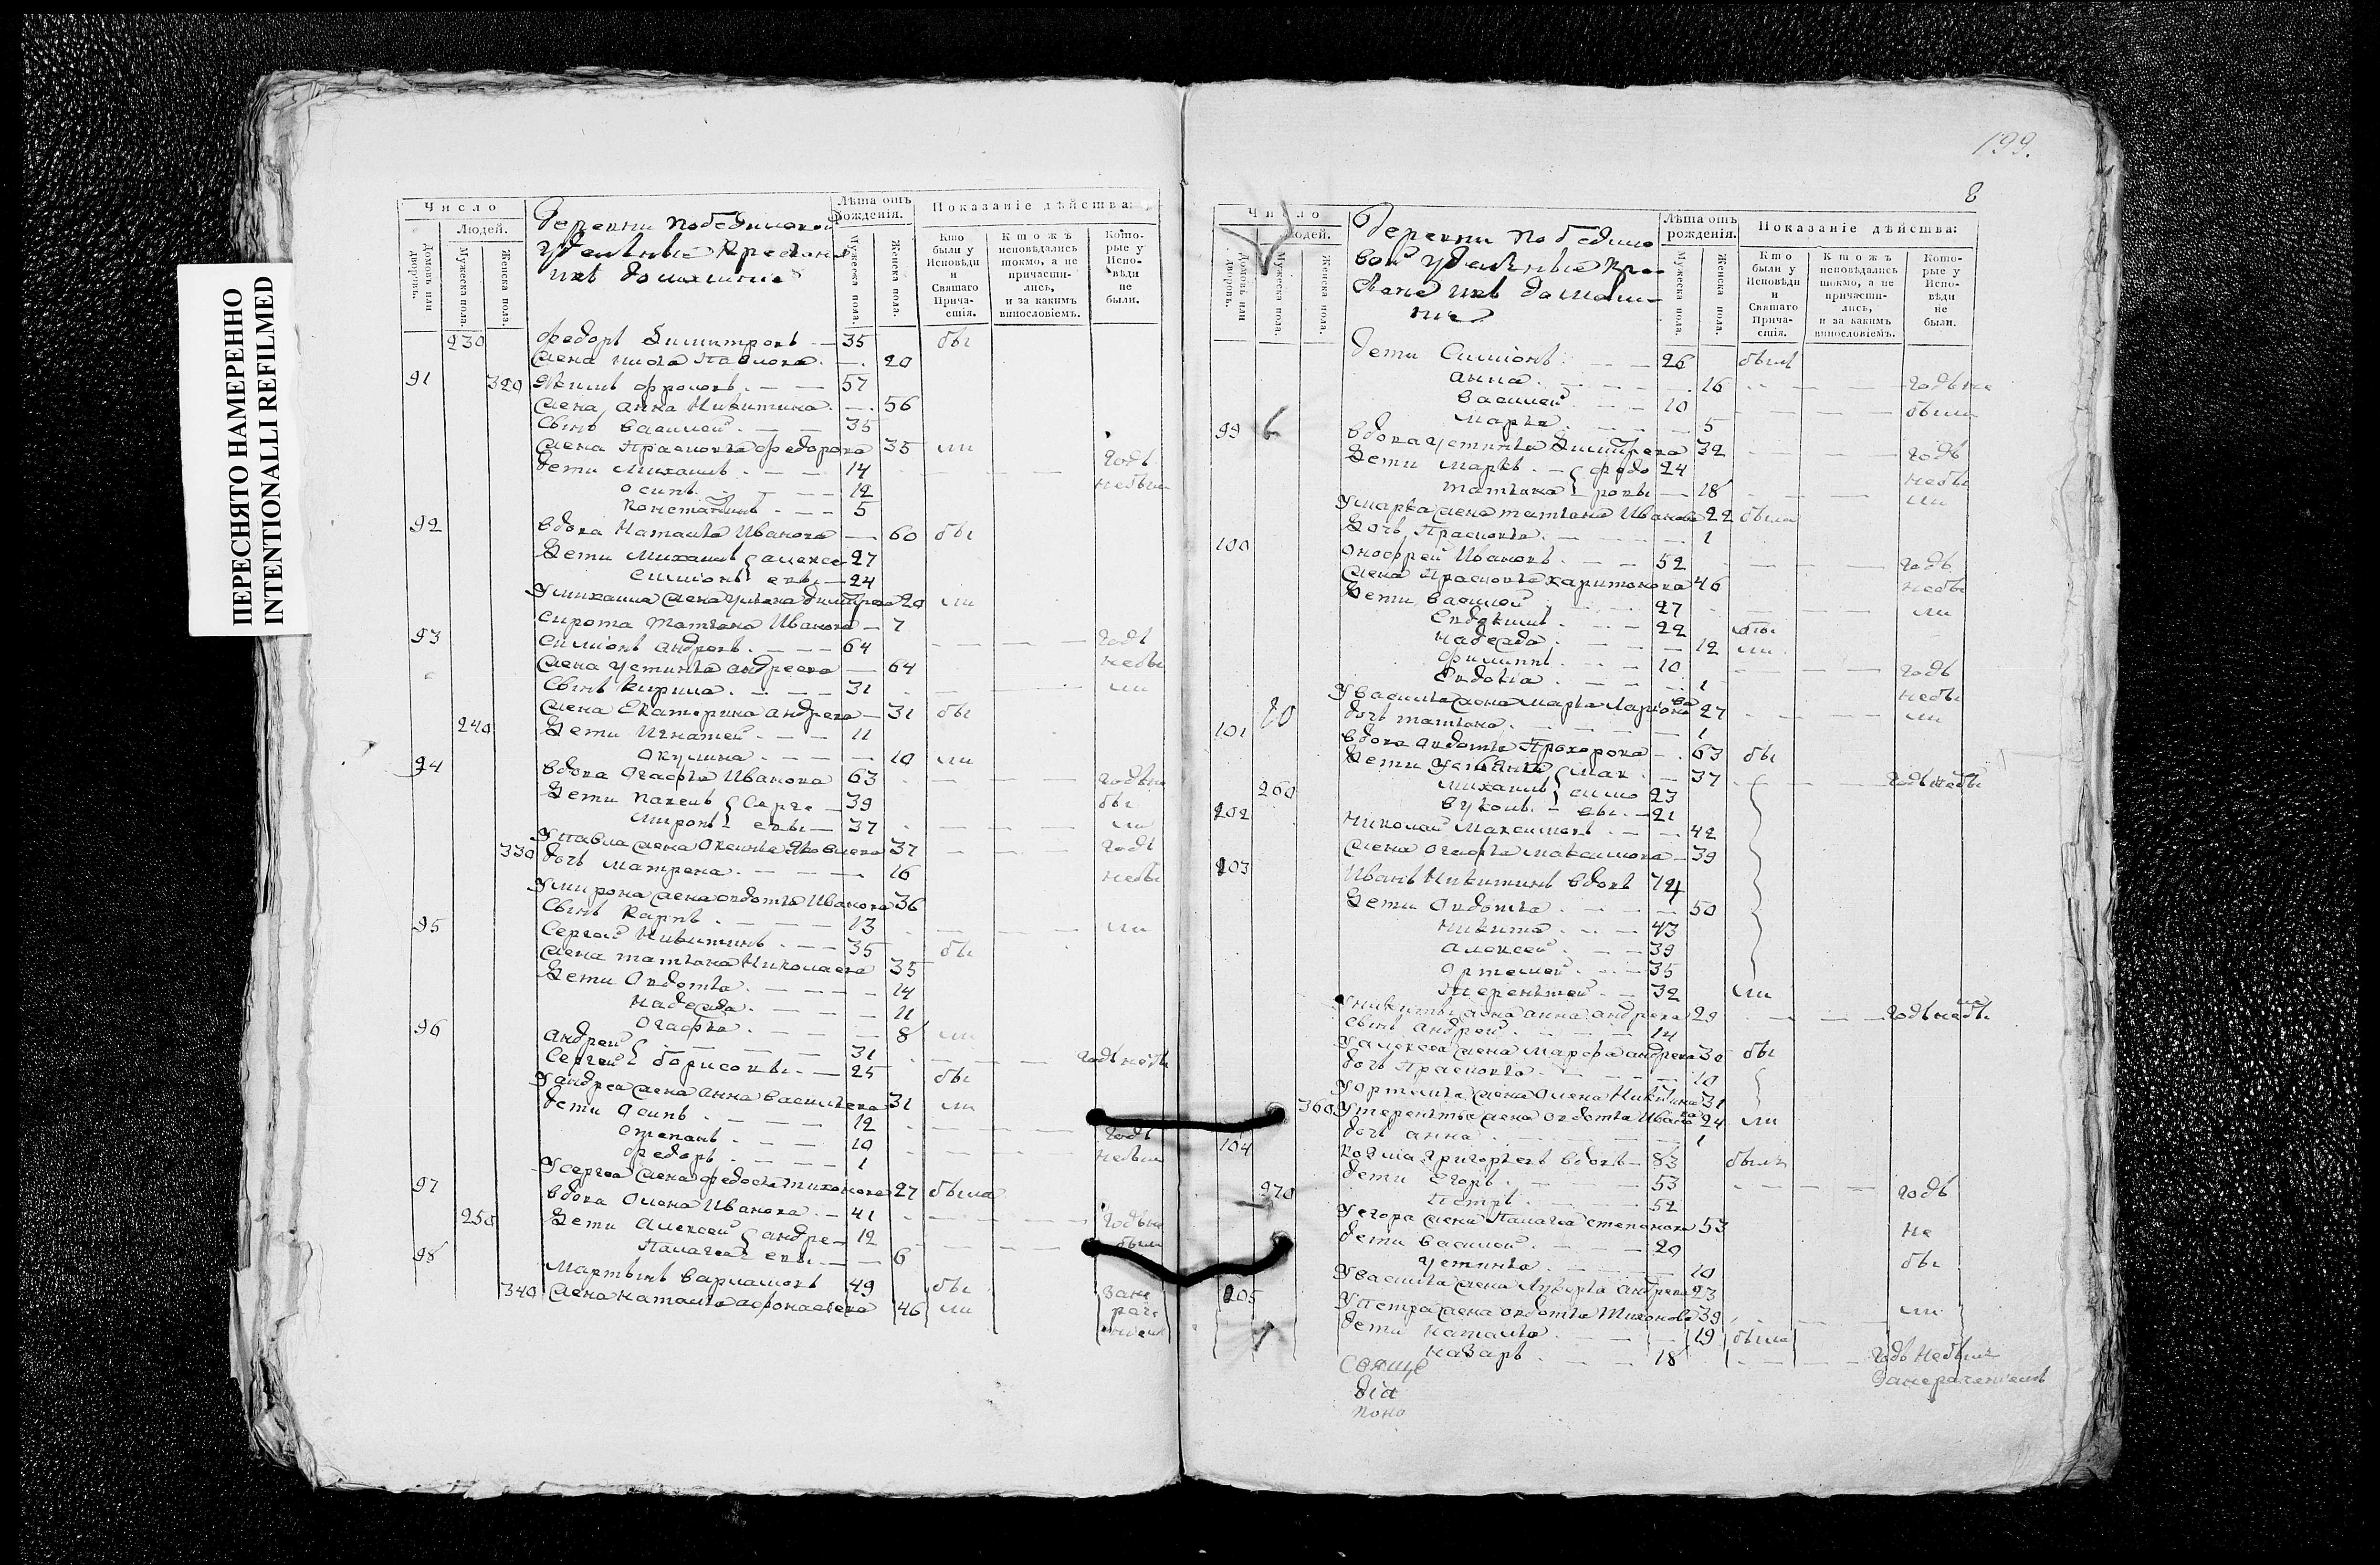 ПЕРЕСНЯТО НАМЕРЕННО
INTENTIONALLI REFILMED
Число
Людей.
Домовъ или дворовъ.
Мужеска пола.
Женска пола.
Деревни Победимовой
Удельные Крестьяне
ихъ домашние
Лѣта отъ рожденія.
Мужеска пола.
Женска пола.
Показаніе дѣйства:
Кто были у Исповѣди и Святаго Прича- стія.
Кто жъ исповѣдались токмо, а не причасти- лись, и за какимъ винословіемъ.
Кото- рые у Испо- вѣди не были.
230 Федоръ Димитровъ 35 бы
Жена Павлова 20
91 320 Якимъ Фроловъ 57
Жена Анна Никитина 56
Сынъ Василей 35
Жена Прасковья Федорова 35 ли
Дети Михаилъ 14 годъ
Осипъ 12 небыли
Константинъ 5
92 Вдова Наталья Иванова 60 бы
Дети Михаилъ Алексе 27
Симионъ евы 24
У Михаила жена Ульяна Димитрова 20 ли
Сирота Татьяна Иванова 7
93 Симионъ Андровъ 64 годъ
Жена Устинья Андреева 64 небы
Сынъ Кирила 31 ли
Жена Екатерина Андреева 31 бы
240 Дети Игнатей 11
Окулина 10 ли
94 Вдова Агафья Иванова 63 годъ не
Дети Павелъ Серге 39 бы
Миронъ евы 37 ли
У Павла жена Оксинья Яковлева 37 годъ
330 Дочь Матрена 16 небы
У Мирона жена Овдотья Иванова 36
Сынъ Карпъ 13 ли
95 Сергей Никитинъ 35 бы
Жена Татьяна Николаева 35
Дети Овдотья 14
Надежда 11
Огафья 8 ли
96 Андрей 31 годъ небы
Сергей Борисовы 25 бы
У Андрея жена Анна Васильева 31 ли
Дети Осипъ 12
Степанъ 10 годъ
Федоръ 1 небыли
У Сергея жена Федосья Тихонова 27 была
97 Вдова Олена Иванова 41 годъ не
250 Дети Алексей Андре 12 были
Палагея евы 6
98 Мартынъ Варламовъ 49 бы
340 Жена Наталья Афонасьева 46 ли
199.
8
Число
Людей.
Домовъ или дворовъ.
Мужеска пола.
Женска пола.
Деревни Победимо
вой Удельные Кре
стьяне ихъ домаш-
ние
Лѣта отъ рожденія.
Мужеска пола.
Женска пола.
Показаніе дѣйства:
Кто были у Исповѣди и Святаго Прича- стія.
Кто жъ исповѣдались токмо, а не причасти- лись, и за какимъ винословіемъ.
Кото- рые у Испо- вѣди не были.
Дети Симионъ 26 былъ
Анна 16 годъ не
Василей 10 были
Марья 5
99 Вдова Устинья Димитрева 32 годъ
Дети Маркъ Федо 24 небы
Татьяна ровы 18 ли
У Марка жена Татьяна Иванова 22 была
Дочь Прасковья 1
100 Онофрей Ивановъ 52 годъ
Жена Прасковья Харитонова 46 небы
Дети Василей 27 ли
Евдокимъ 22 бы
Надежда 12 ли
Филиппъ 10 годъ
Евдокия 1 небы
У Василья жена Марья Ларионова 27 ли
Дочь Татьяна 1
101 Вдова Овдотья Прохорова 63 бы
Дети Устинья Мак 37 годъ небы
260 Михаилъ симо 23
Вуколъ евы 21
102 Николай Максимовъ 42
Жена Огафья Максимова 39
103 Иванъ Никитинъ вдовъ 74
Дети Овдотья 50
Никита 43
Алексей 39
Артемей 35
Терентей 32 ли
У Никиты жена Анна Андреева 29 годъ небы
Сынъ Андрей 14
У Алексея жена Марфа Андреева 30 бы
Дочь Прасковья 10
У Артемья жена Олена Никитина 31
360 У Терентья жена Овдотья Иванова 24 ли
Дочь Анна 1
104 Козма Григорьевъ вдовъ 83 былъ
Дети Егоръ 53 годъ
270 Петръ 52
У Егора жена Палагея Степанова 53 не
Дети Василей 20 бы
Устинья 10
У Василья жена Лукерья Андреева 23
105 У Петра жена Овдотья Тихонова 39 ли
Дети Наталья 19 была
Назаръ 18 годъ небылъ
Занерачениемъ
Свяще
дiа
поно